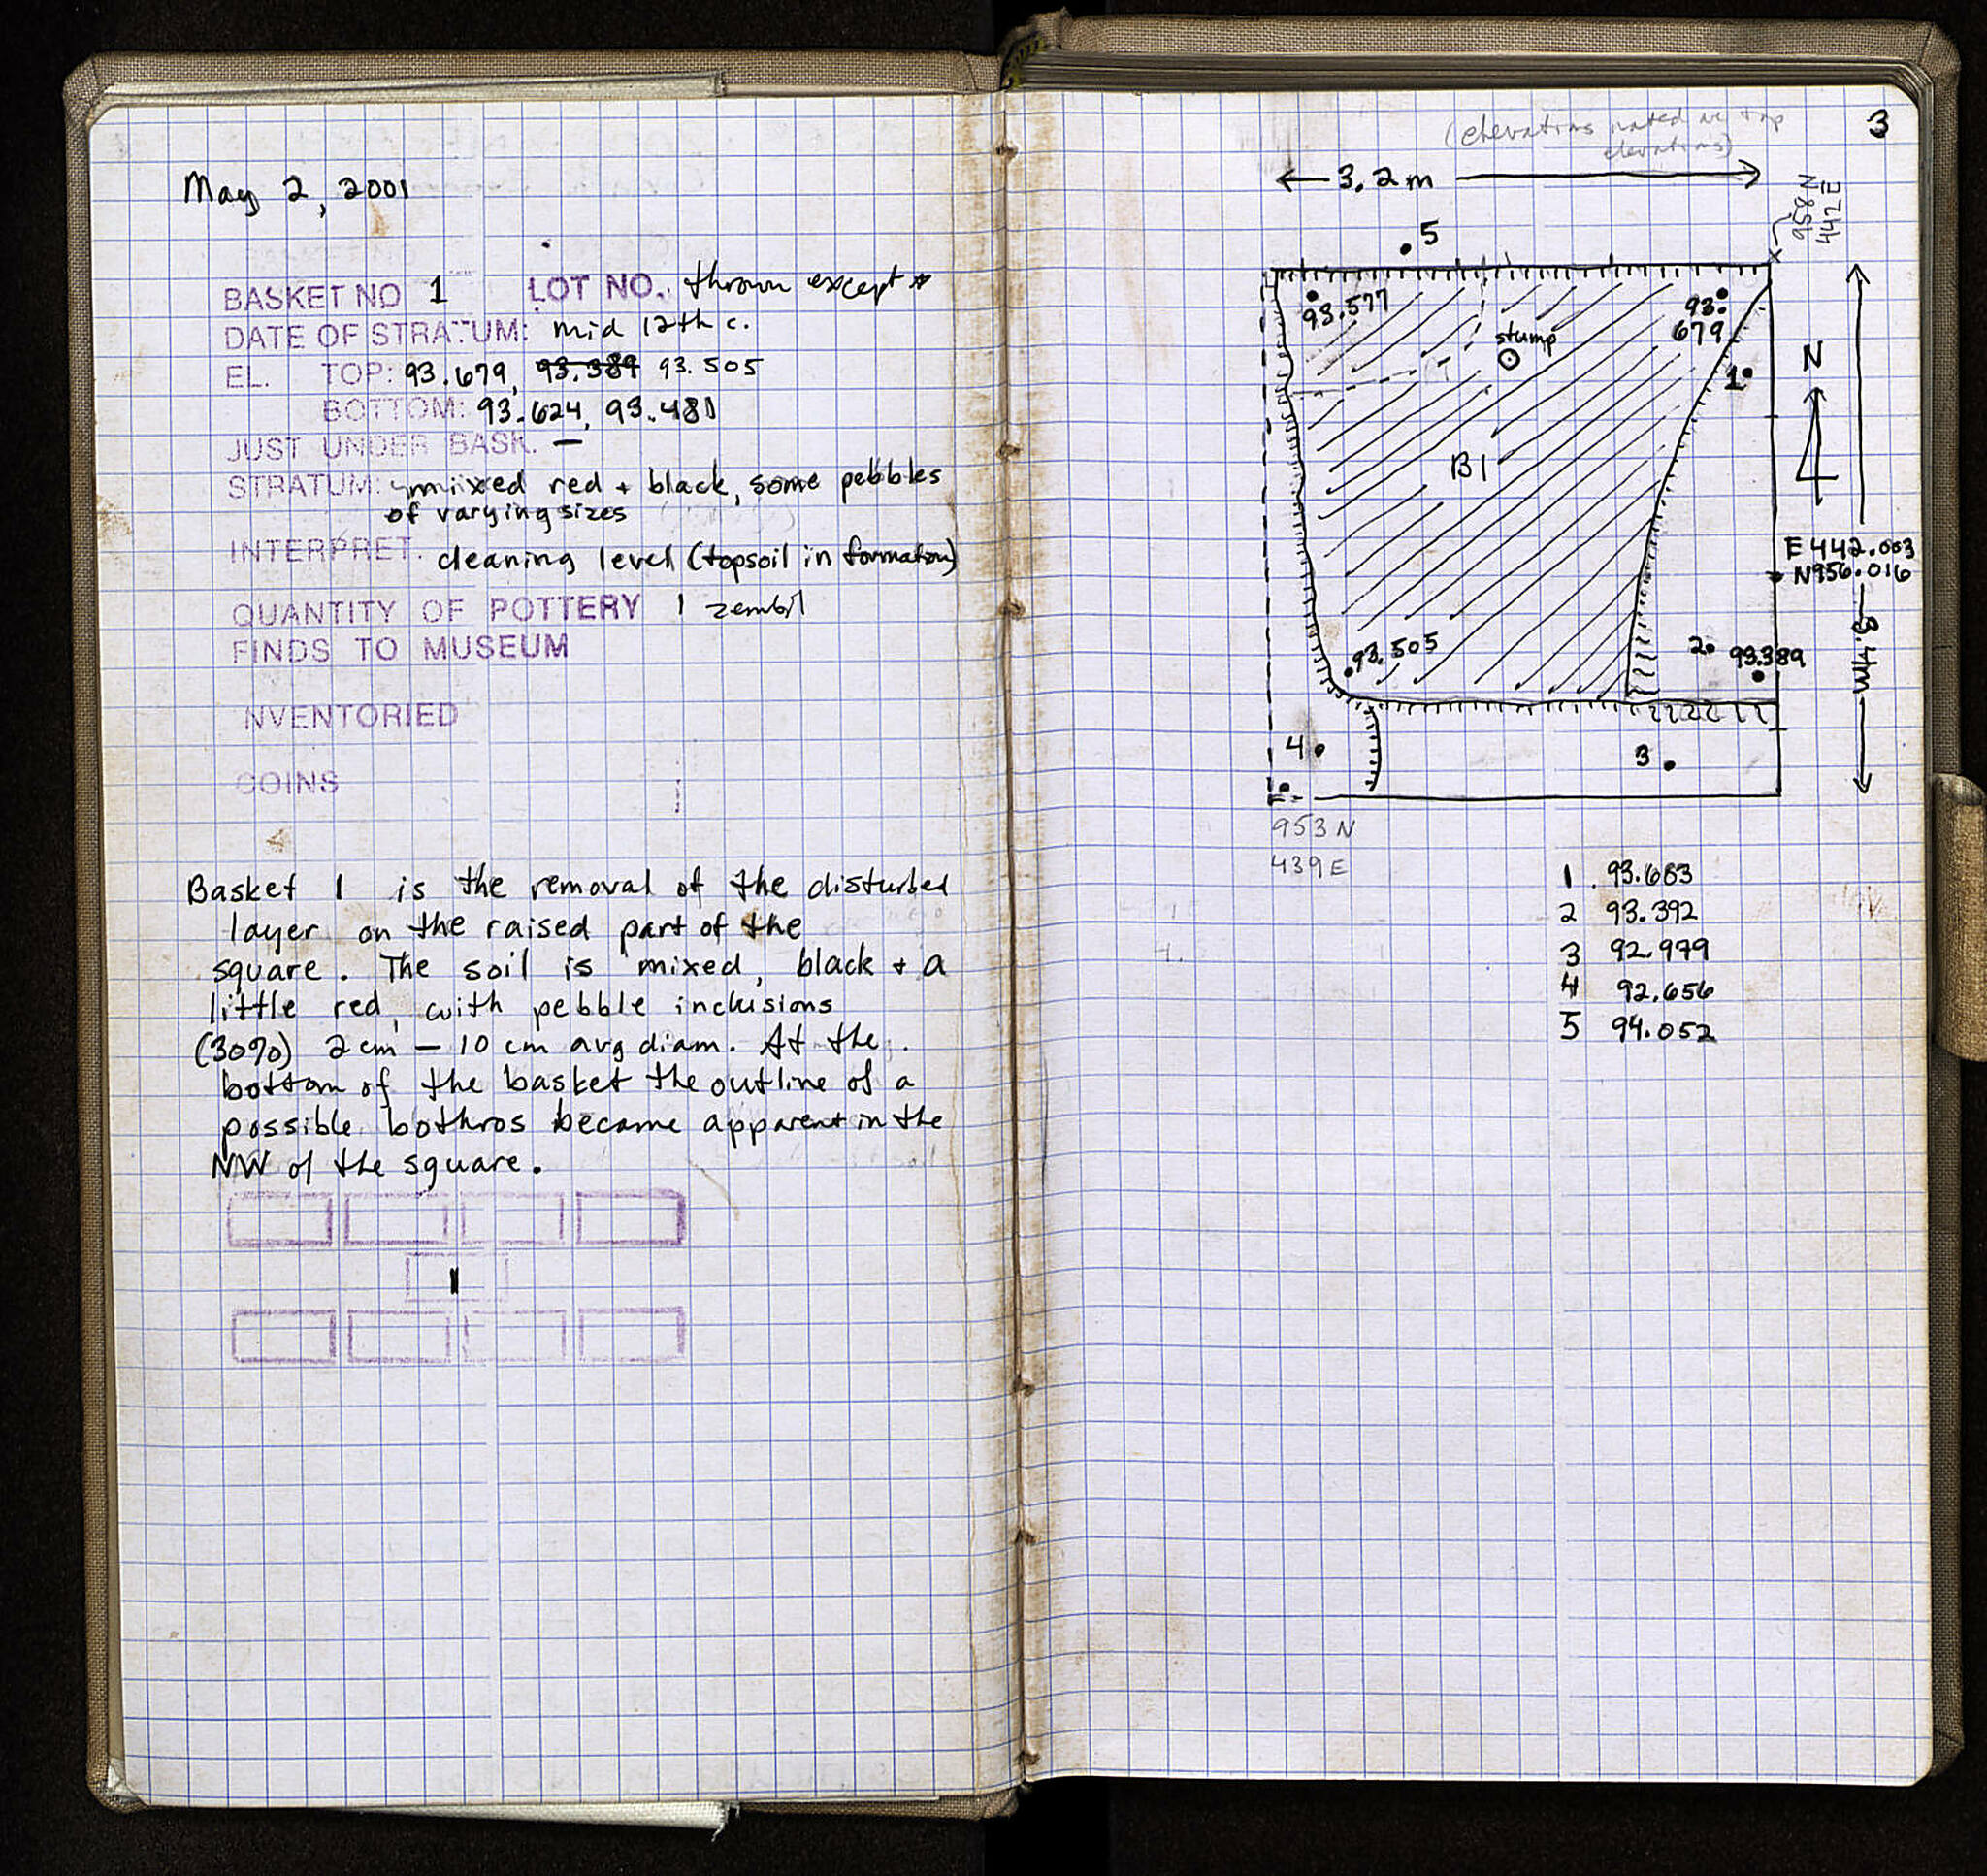 May 2, 2001
BASKET NO 1 LOT NO. thrown except *
DATE OF STRATUM: mid 12th c.
EL. TOP: 93.679, 93.389 93.505
BOTTOM: 93.624, 93.481
JUST UNDER BASK. —
STRATUM: mixed red + black, some pebbles
of varying sizes
INTERPRET. cleaning level (topsoil in formation)
QUANTITY OF POTTERY 1 zembil
FINDS TO MUSEUM
NVENTORIED
COINS
Basket 1 is the removal of the disturbed
layer on the raised part of the
square. The soil is mixed, black + a
little red, with pebble inclusions
(30%) 2 cm – 10 cm avg diam. At the
bottom of the basket the outline of a
possible bothros became apparent in the
NW of the square.
1
3
(elevations noted are top
elevations)
3.2 m
958 N
442 E
5
93.577
93.
679
stump
1
N
B1
E 442.003
N956.016
93.505
2
93.389
4
3
953 N
439 E
1 93.663
2 93.392
3 92.979
4 92.656
5 94.052